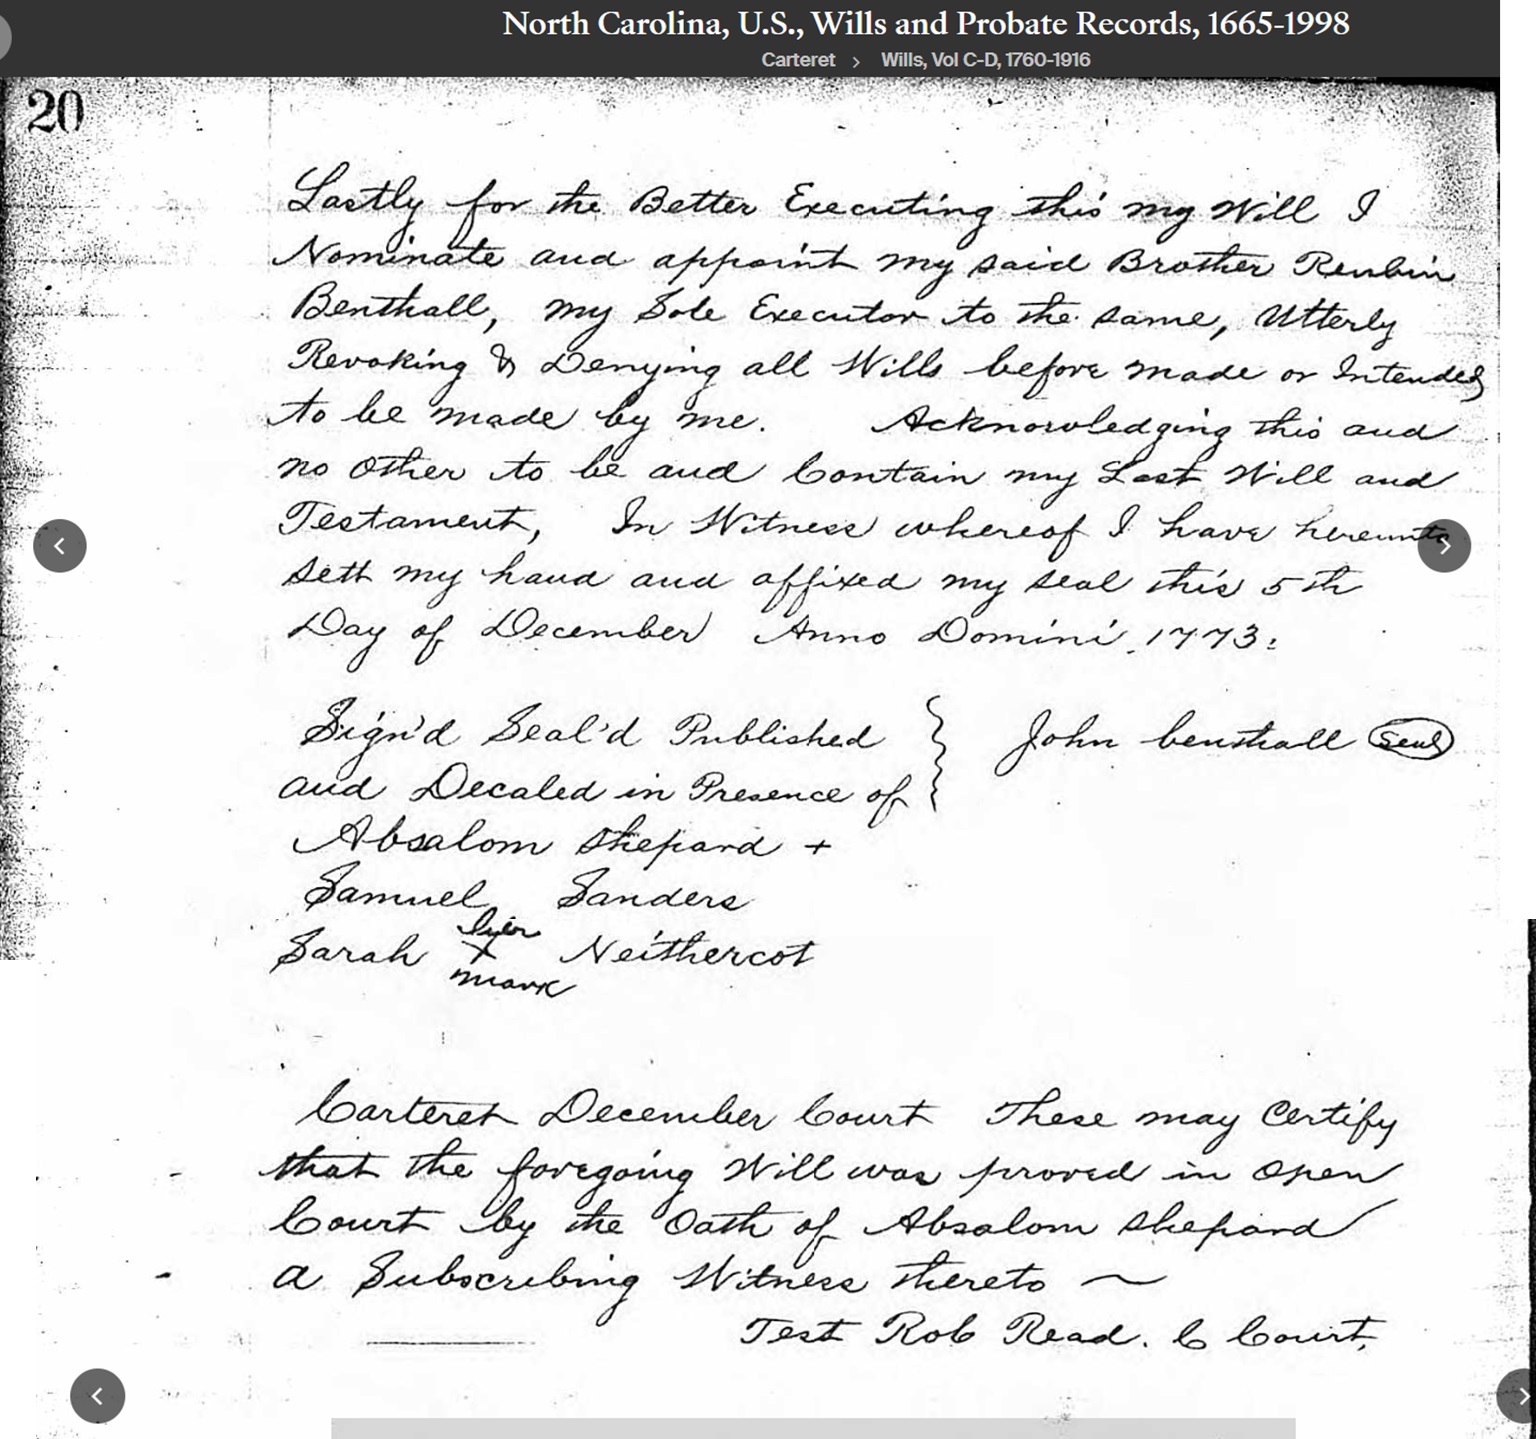 North Carolina, U.S., Wills and Probate Records, 1665-1998
Carteret > Wills, Vol C-D, 1760-1916
20
Lastly for the Better Executing this my Will I
Nominate and appoint my said Brother Reubin
Benthall, my Sole Executor to the same, Utterly
Revoking & Denying all Wills before made or Intended
to be made by me. Acknowledging this and
no other to be and Contain my Last Will and
Testament, In Witness whereof I have hereunto
sett my hand and affixed my seal this 5th
Day of December Anno Domini 1773.
Sign'd Seal'd Published } John benthall (Seal)
and Decaled in Presence of
Absalom Shepard +
Samuel Sanders
her
Sarah X Neithercot
mark
Carteret December Court These may Certify
that the foregoing Will was proved in open
Court by the Oath of Absalom Shepard
a Subscribing Witness thereto ~
Test Rob Read. C Court,